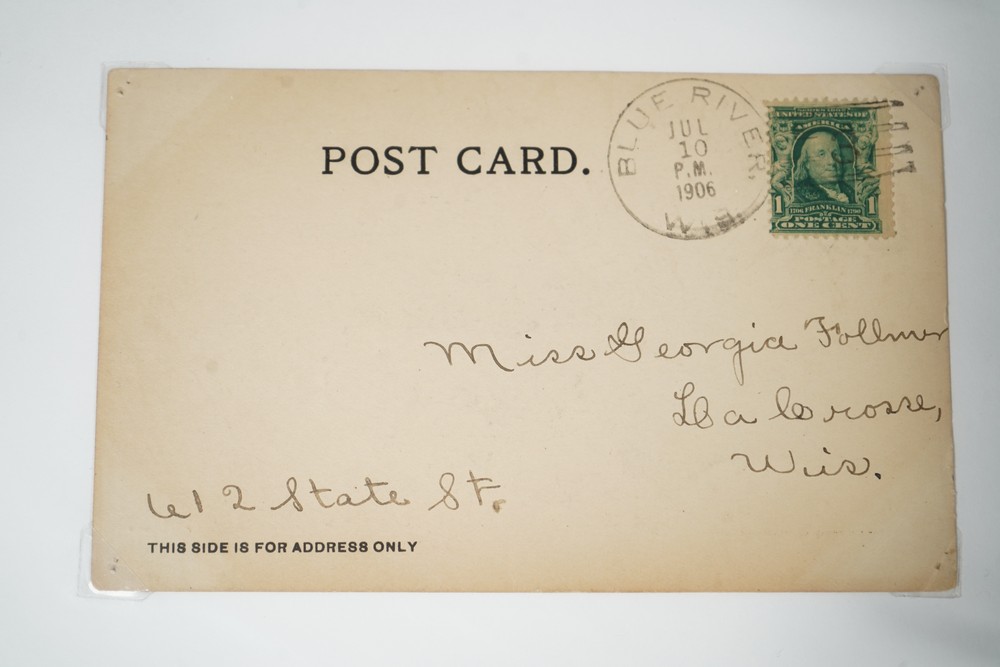 POST CARD.
BLUE RIVER, WIS.
JUL
10
P.M.
1906
SERIES 1902
UNITED STATES OF
AMERICA
1 1
1706 FRANKLIN 1790
POSTAGE
ONE CENT
Miss Georgia Follmer
La Crosse,
Wis.
612 State St.
THIS SIDE IS FOR ADDRESS ONLY